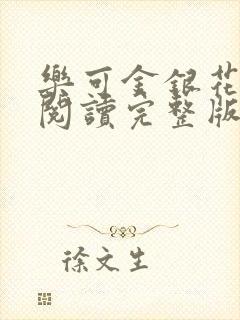 樂可金銀花
閱讀完整版
徐文生